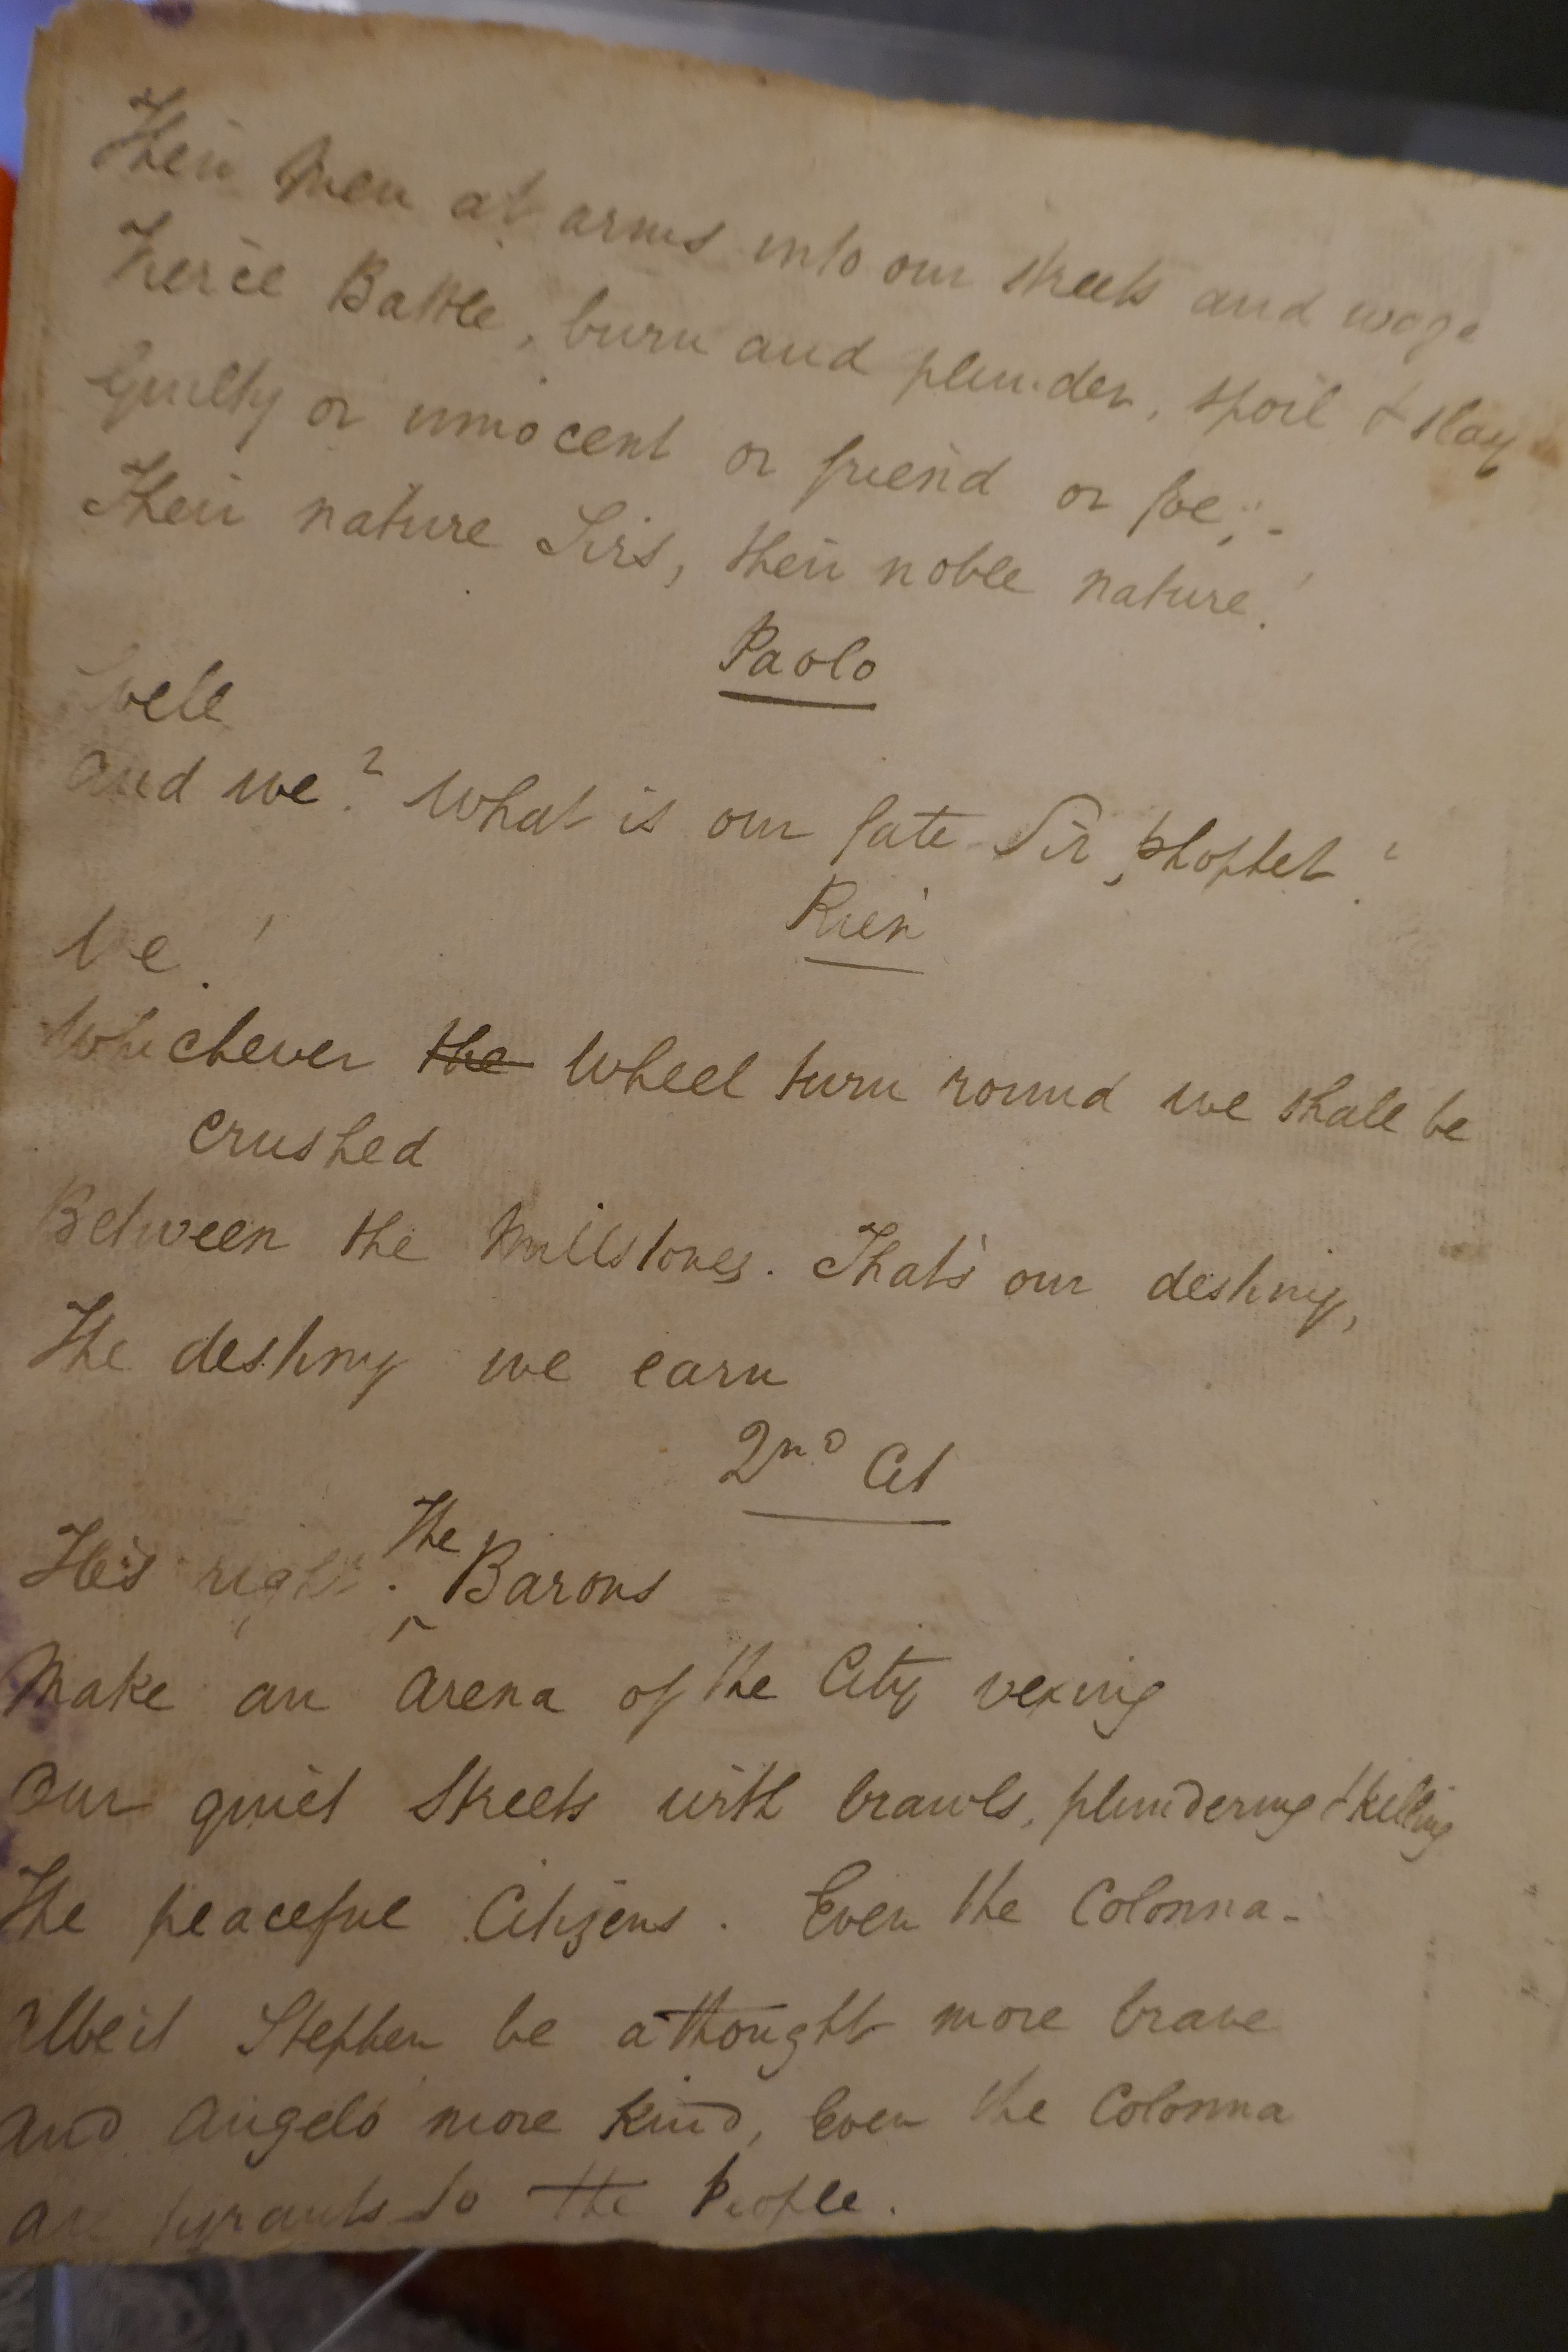 Their Men at arms into our streets and wage
Fierce Battle, burn and plunder, spoil & slay
Guilty or innocent or friend or foe;-
Their nature Sirs, their noble nature!
Paolo
Well
And we? What is our fate Sir, Prophet?
Rien
We!
Whichever the Wheel turn round we shall be
crushed
Between the Millstones. That's our destiny,
The destiny we earn
2nd Cit
He's right. The Barons
Make an Arena of the City vexing
Our quiet Streets with brawls, plundering & killing
The peaceful Citizens. Even the Colonna-
Albeit Stephen be a thought more brave
And Angelo more kind, Even the Colonna
Are tyrants to the People.